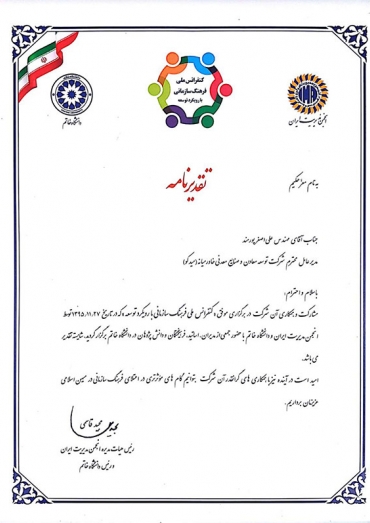 کنفرانس ملی
فرهنگ سازمانی
با رویکرد توسعه
دانشگاه خاتم
انجمن مدیریت ایران
تقدیرنامه
به نام معز حکیم
جناب آقای مهندس علی اصغر پورمند
مدیر عامل محترم شرکت توسعه معادن و صنایع معدنی خاورمیانه (میدکو)
با سلام و احترام،
مشارکت و همکاری آن شرکت در برگزاری موفق کنفرانس ملی فرهنگ سازمانی با رویکرد توسعه که در تاریخ ۱۳۹۵،۱۱،۲۷ توسط
انجمن مدیریت ایران و دانشگاه خاتم با حضور جمعی از مدیران، اساتید، فرهیختگان و دانش پژوهان در دانشگاه خاتم برگزار گردید، شایسته تقدیر
می باشد.
امید است در آینده نیز با همکاری های گرانقدر آن شرکت بتوانیم گام های موثرتری در اعتلای فرهنگ سازمانی در میهن اسلامی
عزیزمان برداریم.
مجید قاسمی
رئیس هیات مدیره انجمن مدیریت ایران
و رئیس دانشگاه خاتم